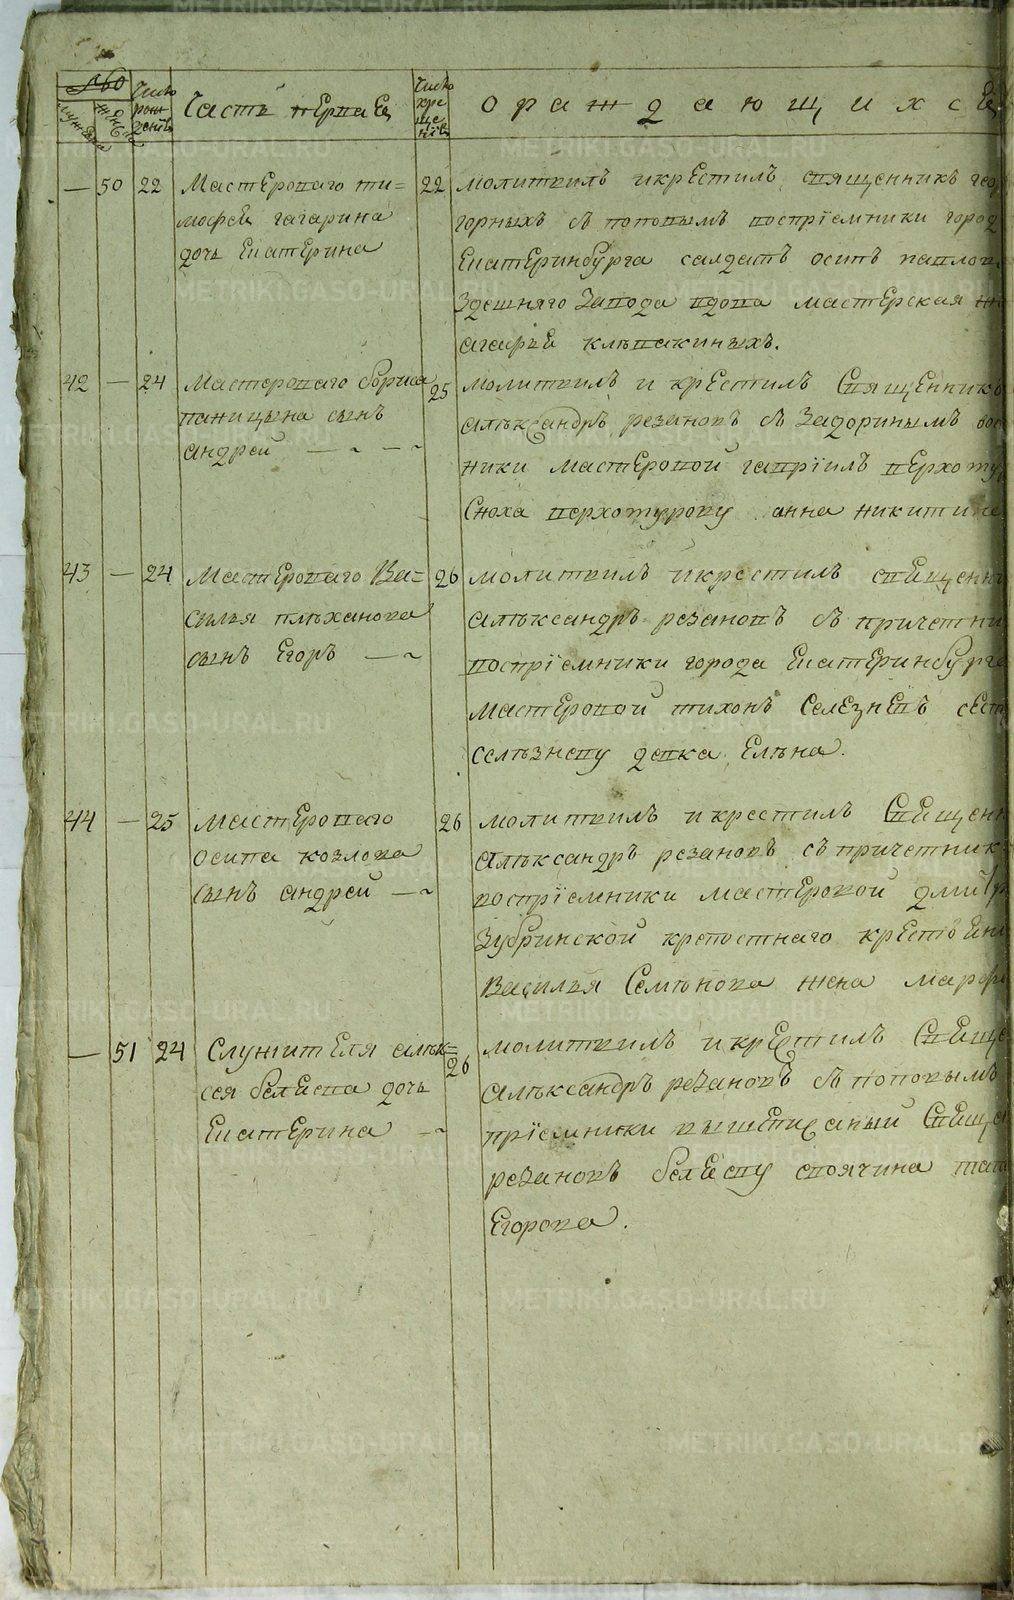 METRIKI.GASO-URAL.RU
№
Число рождениѣ
Часть перваѧ
Число крещениѣ
о раждающихсѧ
мужеска
женска
— 50 22 Мастероваго ти=
мофеѧ гагарина
дочь Екатерина
22 молитвилъ и крестилъ священникъ
горныхъ съ поповымъ воспрїемники город
Екатеринбурга салдатъ осипъ павлов
здешняго завода вдова мастерская
агафьѧ клѣвакиныхъ.
42 — 24 Мастероваго бориса
паницына сынъ
андрей
25 молитвилъ и крестилъ Священникъ
алѣксандръ резановъ съ Задоринымъ вос
ники мастеровой гаврїилъ верхоту
Сноха верхотурову анна никитина
43 — 24 Мастероваго Ва=
силья плѣханова
сынъ Егоръ
26 молитвилъ и крестилъ свѧщенни
алѣксандръ резановъ съ причетни
воспрїемники города Екатеринбурга
мастеровой тихонъ Селезневъ сест
селѣзневу девка Елѣна.
44 — 25 мастероваго
осипа козлова
сынъ андрей
26 молитвилъ и крестилъ Свѧщенн
алѣксандръ резановъ съ причетник
воспрїемники мастеровой дмитр
Зубринской крепостнаго крестьѧни
Василья Семѣнова жена марф
— 51 24 Служителя алѣк=
сея белѧева дочь
Екатерина
26 молитвилъ и крестилъ Свѧще
алѣксандръ резановъ съ поповымъ
прїемники вышеписаный Свѧще
резановъ белѧеву своячина тат
Егорова.